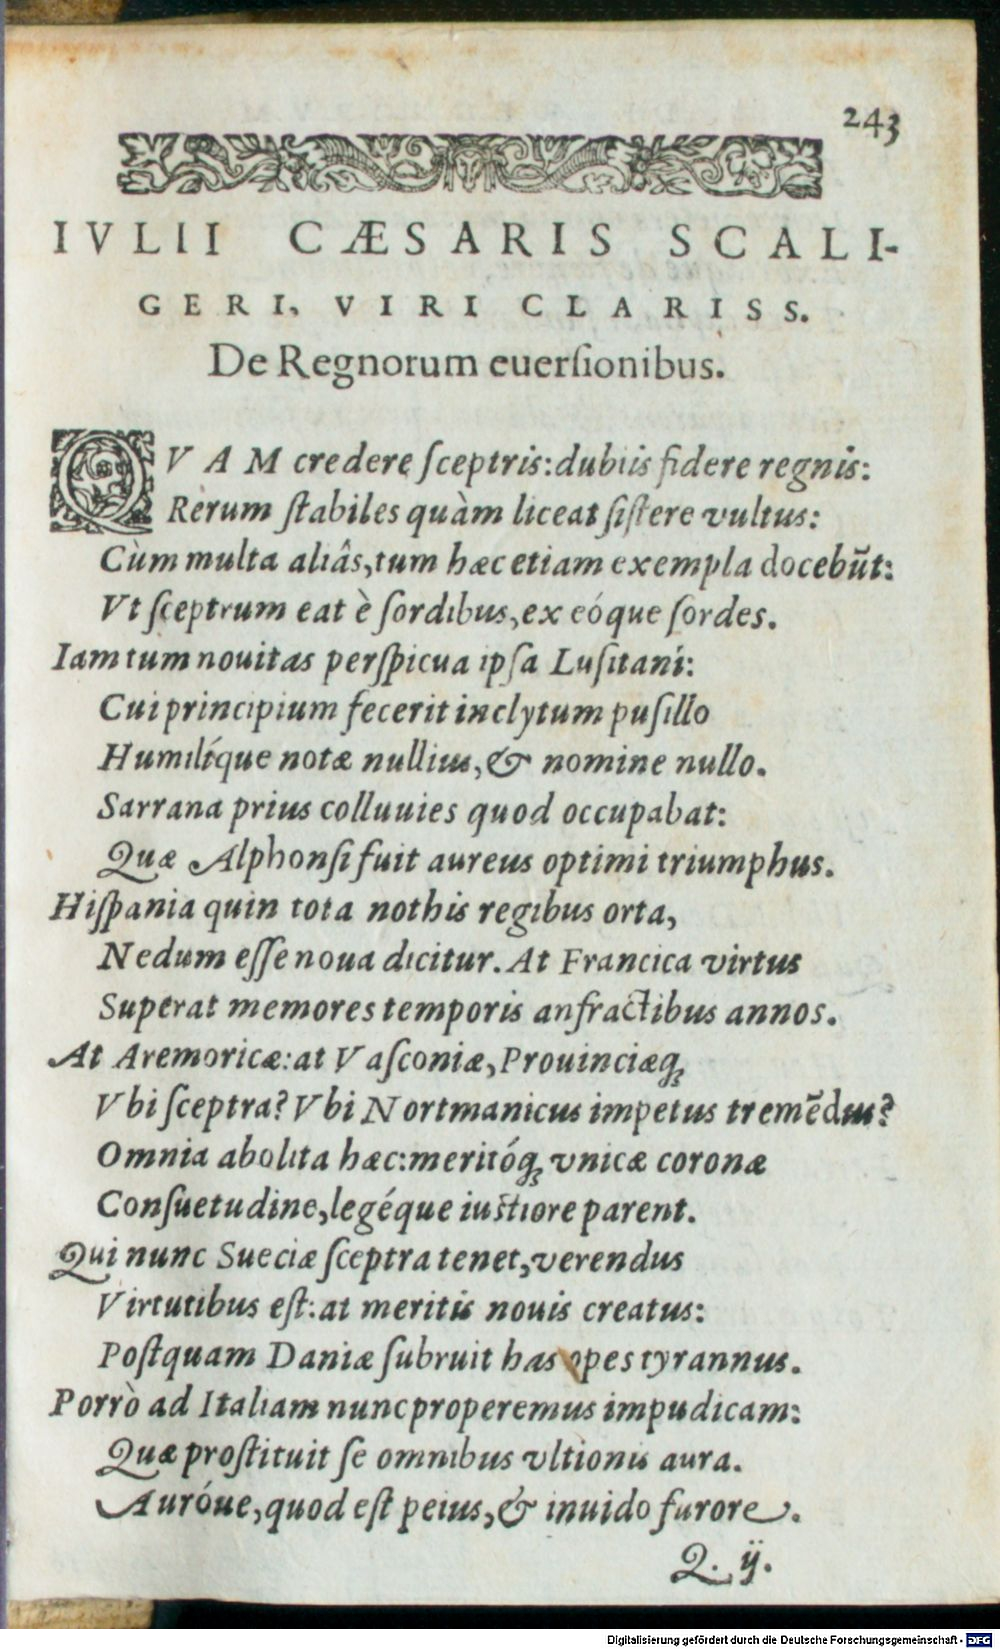 243
IVLII CÆSARIS SCALI-
GERI, VIRI CLARISS.
De Regnorum euerſionibus.
QVAM credere ſceptris: dubiis fidere regnis:
Rerum ſtabiles quàm liceat ſiſtere vultus:
Cùm multa aliâs, tum hæc etiam exempla docebūt:
Vt ſceptrum eat è ſordibus, ex eóque ſordes.
Iam tum nouitas perſpicua ipſa Luſitani:
Cui principium fecerit inclytum puſillo
Humilíque notæ nullius, & nomine nullo.
Sarrana prius colluuies quod occupabat:
Quæ Alphonſi fuit aureus optimi triumphus.
Hiſpania quin tota nothis regibus orta,
Nedum eſſe noua dicitur. At Francica virtus
Superat memores temporis anfractibus annos.
At Aremoricæ: at Vaſconiæ, Prouinciæq;
Vbi ſceptra? Vbi Nortmanicus impetus tremēdus?
Omnia abolita hæc: meritóq; vnicæ coronæ
Conſuetudine, legéque iuſtiore parent.
Qui nunc Sueciæ ſceptra tenet, verendus
Virtutibus eſt: at meritis nouis creatus:
Poſtquam Daniæ ſubruit has opes tyrannus.
Porrò ad Italiam nunc properemus impudicam:
Quæ proſtituit ſe omnibus vltionis aura.
Auróue, quod eſt peius, & inuido furore.
Q. ij.
Digitalisierung gefördert durch die Deutsche Forschungsgemeinschaft - DFG